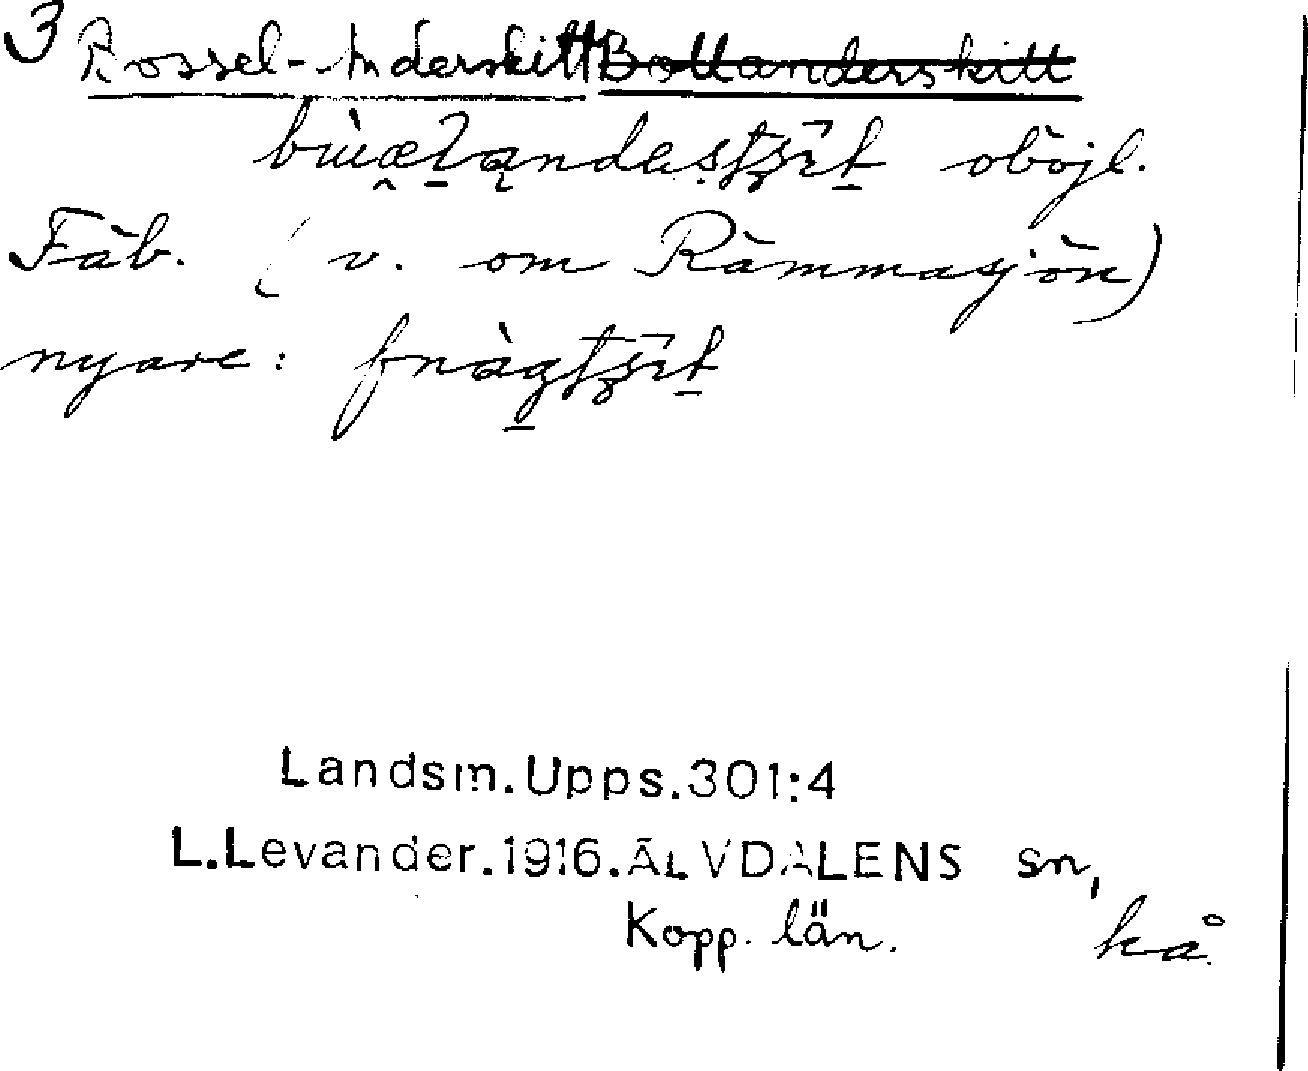 3 Rossel-Anderskitt Bottanderskitt
oböjl.
Fäb. (v. om Rämmasjön)
nyare:
Landsm.Upps.301:4
L.Levander.1916.ÄLVDALENS sn,
Kopp. län. kå.